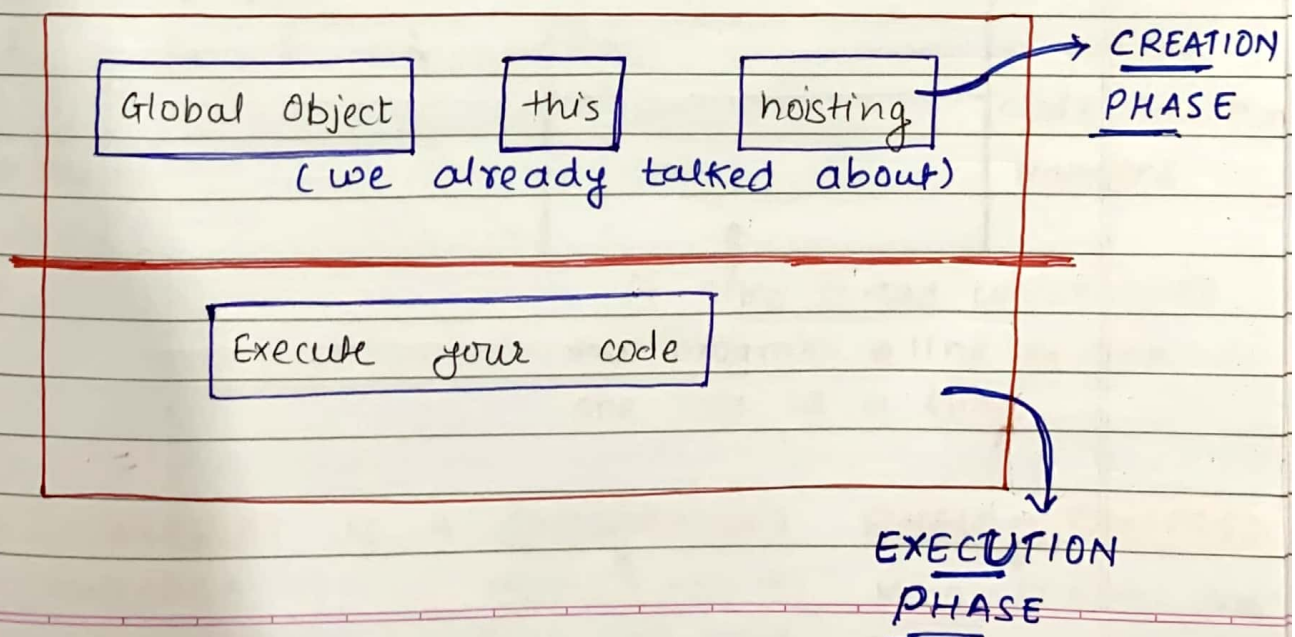 Global Object this hoisting
CREATION
PHASE
(we already talked about)
Execute your code
EXECUTION
PHASE